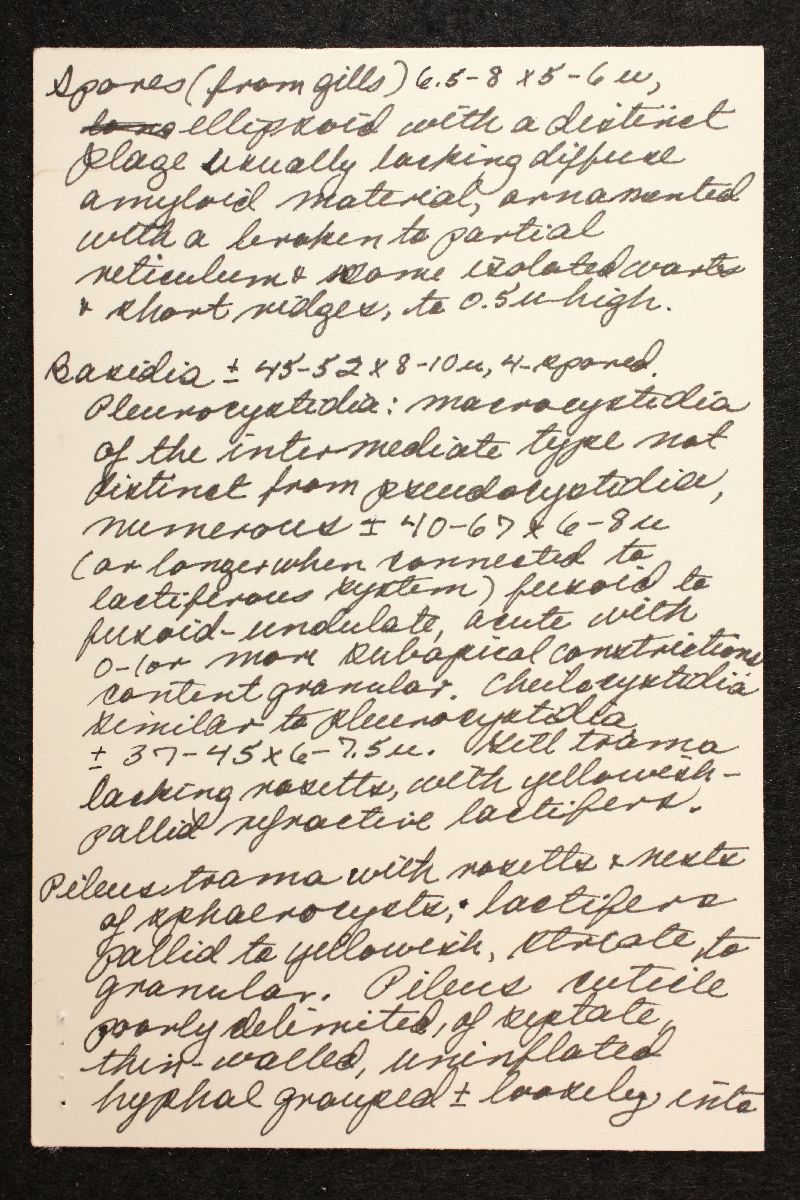 Spores (from gills) 6.5-8 x 5-6 u,
ellipsoid with a distinct
plage usually lacking diffuse
amyloid material, ornamented
with a broken to partial
reticulum & some isolated warts
& short ridges, to 0.5u high.
Basidia ± 45-52 x 8-10u, 4-spored.
Pleurocystidia: macrocystidia
of the intermediate type not
distinct from pseudocystidia,
numerous ± 40-67 x 6-8u
(or longer when connected to
lactiferous system) fusoid to
fusoid-undulate, acute with
0-1 or more subapical constrictions
content granular. Cheilocystidia
similar to pleurocystidia
± 37-45 x 6-7.5u. Gill trama
lacking rosetts, with yellowish-
pallid refractive lactifers.
Pileus trama with rosetts & nests
of sphaerocysts; lactifers
pallid to yellowish, striate to
granular. Pileus cuticle
poorly delimited, of septate,
thin-walled, uninflated
hyphal grouped ± loosely into